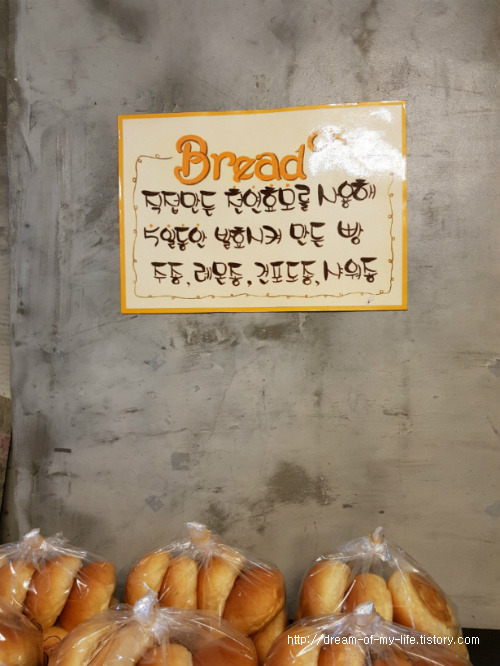 Bread
직접만든 천연효모를 사용해
5일동안 발효시켜 만든 빵
주종, 레몬종, 건포도종, 사워종
http://dream-of-my-life.tistory.com